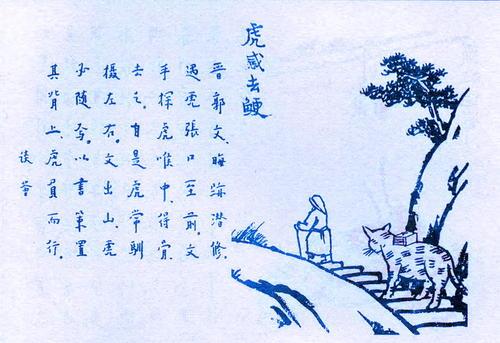 虎感去鯁
晋郭文、晦跡潜修、
遇虎張口至前、文
手探虎喉中、得骨、
去之、自是虎常馴
擾左右、文出山、虎
必随焉、以書策置
其背上、虎負而行。
談薈